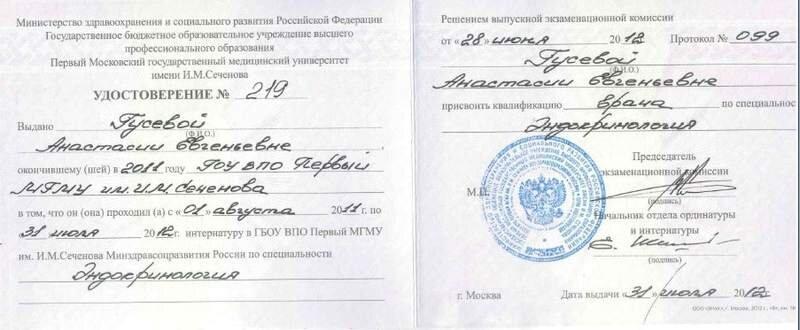 Министерство здравоохранения и социального развития Российской Федерации
Государственное бюджетное образовательное учреждение высшего
профессионального образования
Первый Московский государственный медицинский университет
имени И.М.Сеченова
УДОСТОВЕРЕНИЕ № 219
Выдано Гусевой
(Ф.И.О.)
Анастасии Евгеньевне
окончившему (шей) в 2011 году ГОУ ВПО Первый
МГМУ им. И.М. Сеченова
в том, что он (она) проходил (а) с «01» августа 2011г. по
31 июля 2012г. интернатуру в ГБОУ ВПО Первый МГМУ
им. И.М.Сеченова Минздравсоцразвития России по специальности
Эндокринология
Решением выпускной экзаменационной комиссии
от «28» июня 2012 Протокол № 099
Гусевой
(Ф.И.О.)
Анастасии Евгеньевне
присвоить квалификацию врача по специальнос
Эндокринология
Председатель
экзаменационной комиссии
М.П.
(подпись)
Начальник отдела ординатуры
и интернатуры
(подпись)
г. Москва Дата выдачи «31» июля 2012г.